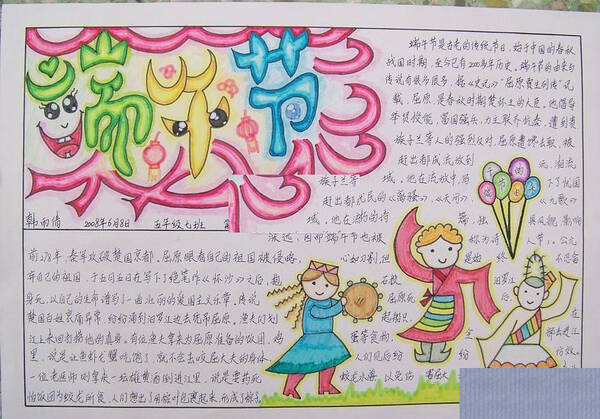 端午节
韩雨倩 2008年6月8日 五年级七班
端午节是古老的传统节日,始于中国的春秋
战国时期,至今已有2000多年历史。端午节的由来与
传说有很多很多,据《史记》"屈原贾生列传"记
载,屈原,是春秋时期楚怀王的大臣。他倡导
举贤授能,富国强兵,力主联齐抗秦,遭到贵
族子兰等人的强烈反对,屈原遭馋去职,被
赶出都城,流放到 元、湘流
族子兰等 域。他在流放中,写 下了忧国
赶出都 忧民的《离骚》、《天问》、 《九歌》
域。他在流 的诗 篇,独 具风貌,影响
深远,因而端午节也被 称为诗 人节)。公元
前278年,秦军攻破楚国京都。屈原眼看自己的祖国被侵略, 心如刀割,但 是始 终 不忍舍
弃自己的祖国,于五月五日在写下了绝笔作《怀沙》之后,抱 石投 汨罗江
身死,以自己的生命谱写了一曲壮丽的爱国主义乐章。传说, 屈原死 后,
楚国百姓哀痛异常,纷纷涌到汨罗江边去凭吊屈原。渔夫们划 起船只, 在
江上来回打捞他的真身。有位渔夫拿来为屈原准备的饭团、鸡 蛋等食物, 全
里,说是让鱼虾吃饱了,就不会去咬屈大夫的身体 人们见后纷 纷
一位老医师则拿来一坛雄黄酒倒进江里,说是要药死 蛟龙水兽,以免伤 害屈大
怕饭团为蛟龙所食,人们想出了用 形成了粽子